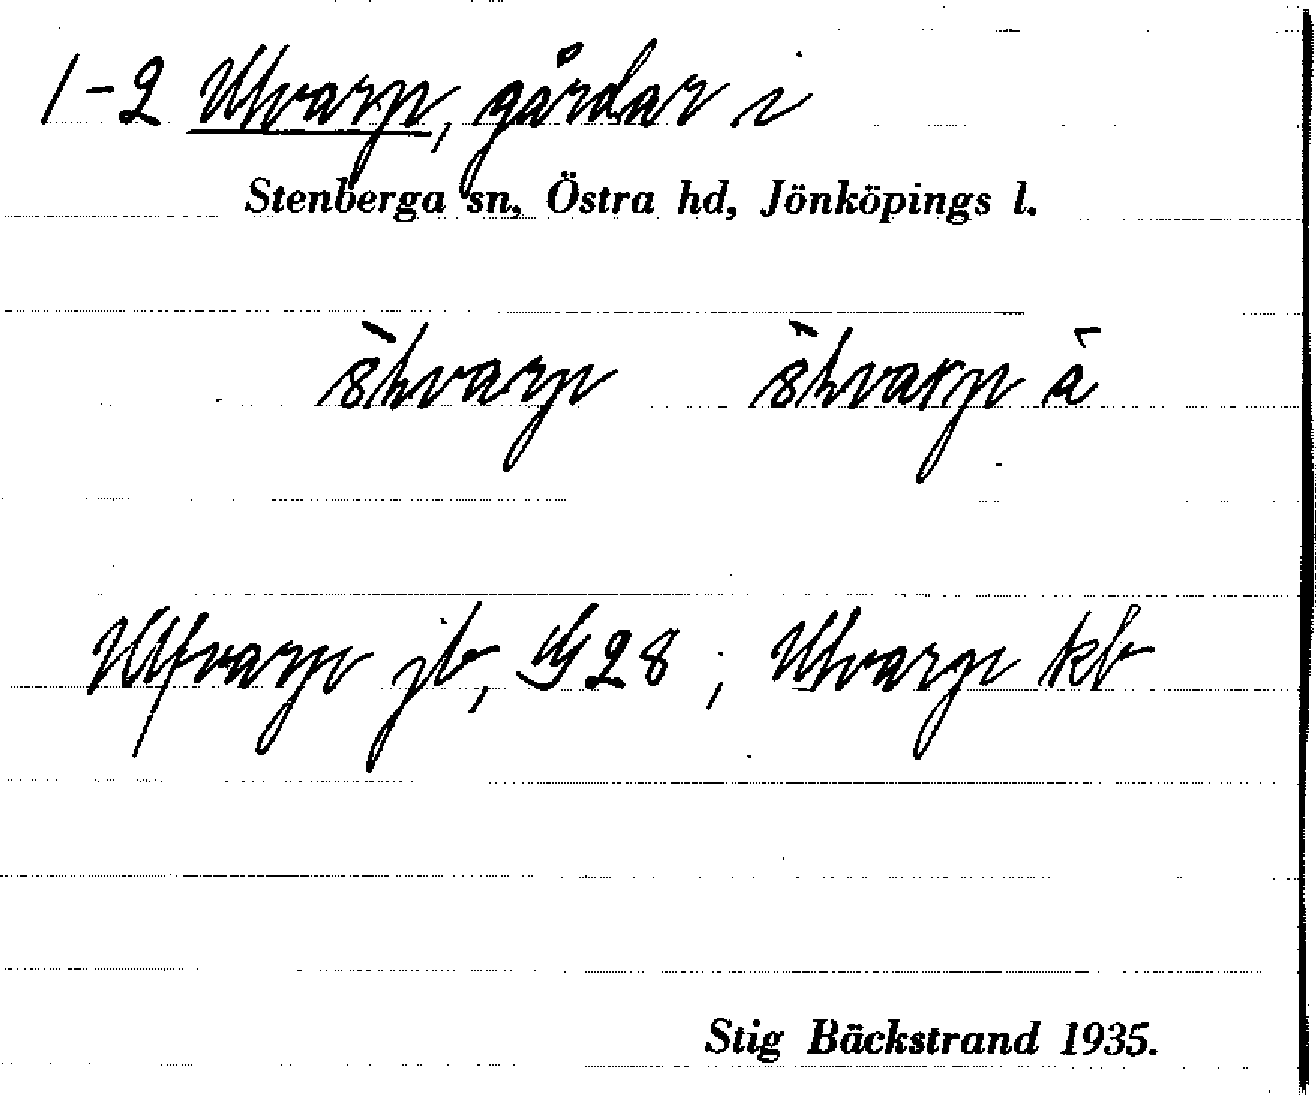 1-2 Utvarp, gårdar i
Stenberga sn, Östra hd, Jönköpings l.
Utfvarp jb, 28 ; Utvarp kb
Stig Bäckstrand 1935.